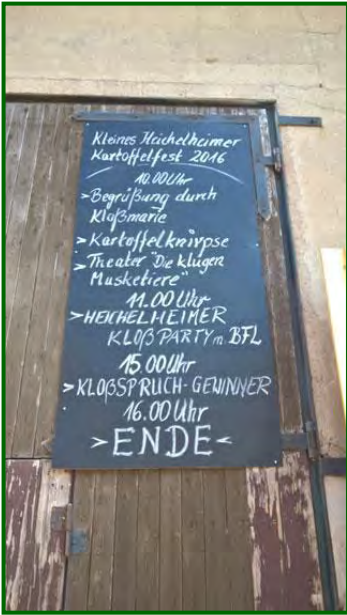 Kleines Heichelheimer
Kartoffelfest 2016
10.00 Uhr
>Begrüßung durch
Kloßmarie
>Kartoffelknirpse
>Theater "Die klugen
Musketiere"
11.00 Uhr
>HEICHELHEIMER
KLOß PARTY m. BFL
15.00 Uhr
>KLOßSPRUCH-GEWINNER
16.00 Uhr
>ENDE<